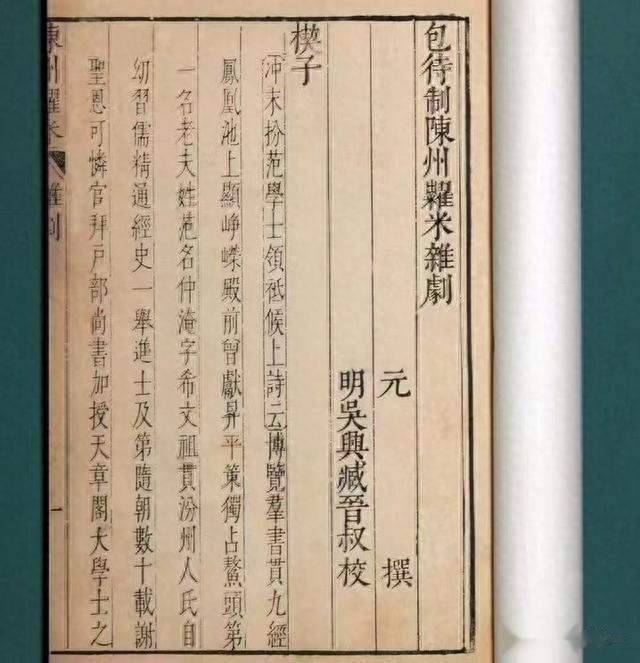 包待制陳州糶米雜劇
元 撰
明吳興臧晉叔校
楔子
冲末扮范學士領祗候上詩云博覽羣書貫九經
鳳凰池上顯崢嶸殿前曾獻昇平策獨占鰲頭第
一名老夫姓范名仲淹字希文祖貫汾州人氏自
幼習儒精通經史一舉進士及第隨朝數十載謝
聖恩可憐官拜戸部尚書加授天章閣大學士之
陳州糶米 雜劇
一